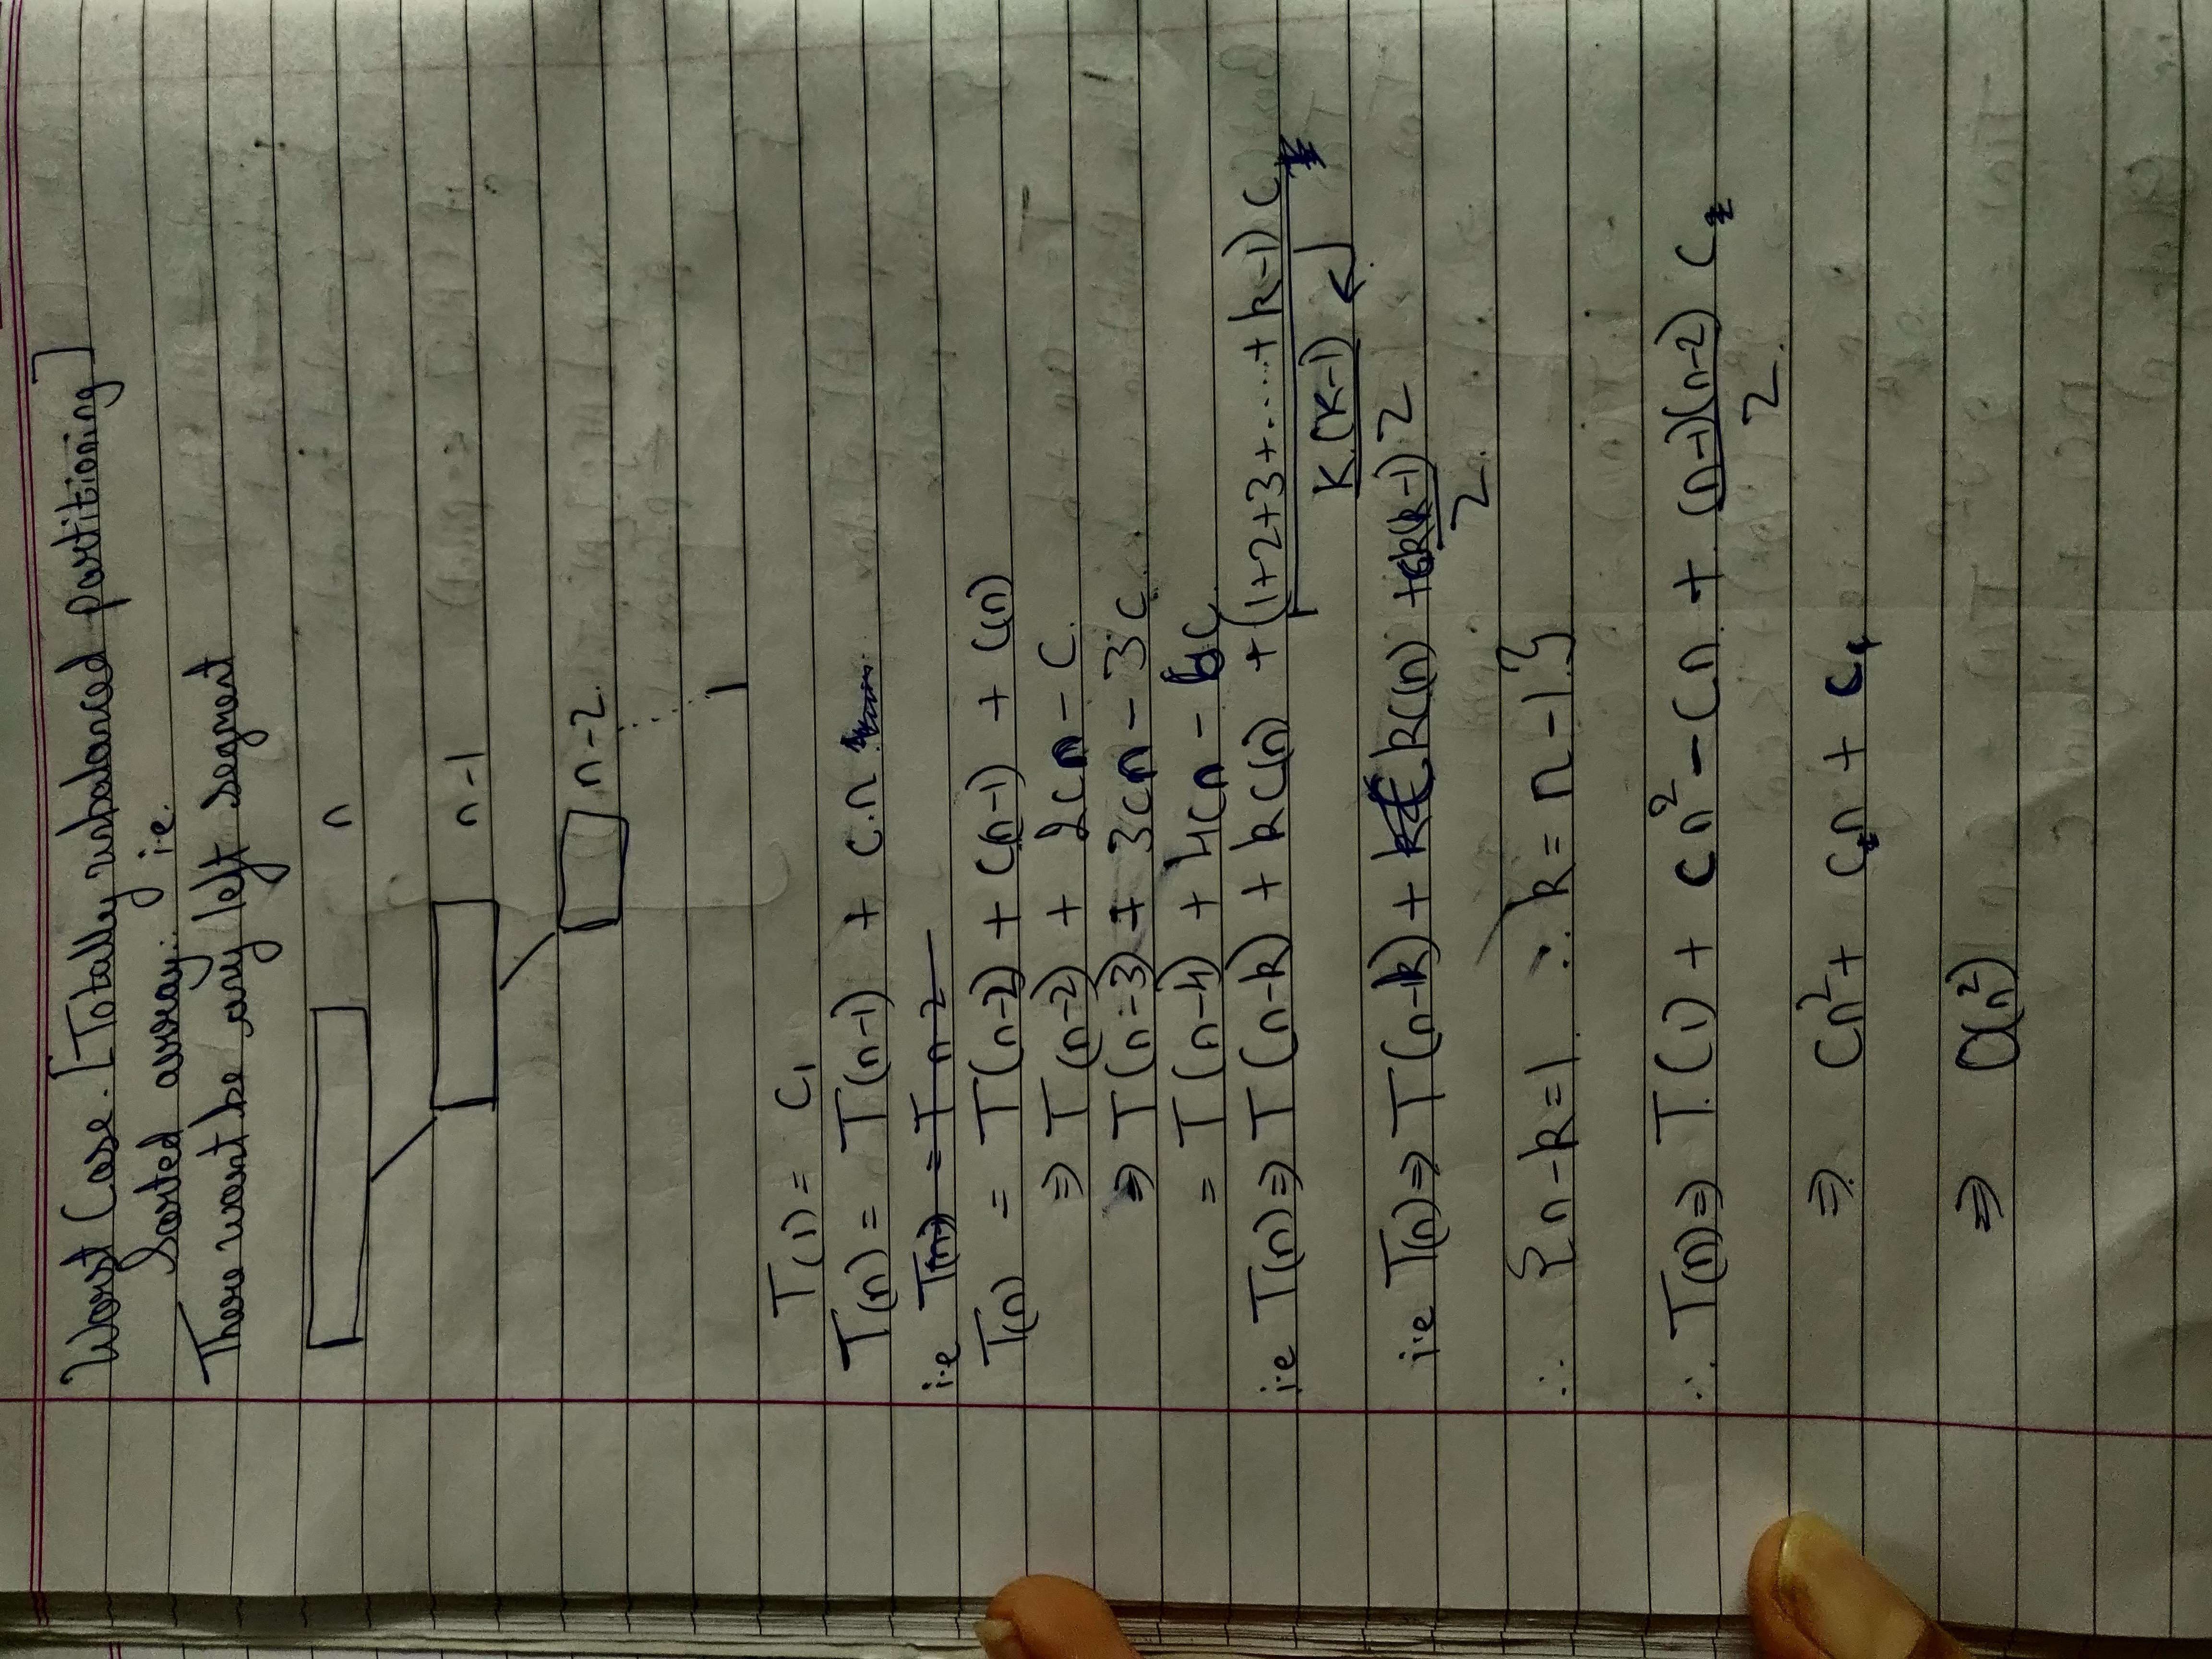 Worst Case. [Totally unbalanced partitioning]
Sorted array: i.e.
There wont be any left segment
n
n-1
n-2.
1
T(1) = C₁
T(n) = T(n-1) + C.n
i.e T(n) = T n-2
T(n) = T(n-2) + C(n-1) + C(n)
⇒ T(n-2) + 2Cn - C.
⇒ T(n-3) + 3Cn - 3C.
= T(n-4) + 4Cn - 6C
i.e T(n) ⇒ T(n-k) + kC(n) + (1+2+3+.....+k-1) C
K.(K-1) ↲
i.e T(n) ⇒ T(n-k) + kC(n) + Ck(k-1) 2
2.
∴ {n-k=1. ∴ k = n-1.}
∴ T(n) ⇒ T.(1) + Cn² - Cn + (n-1)(n-2) C
2.
⇒ Cn² + Cn + C₁
⇒ O(n²)